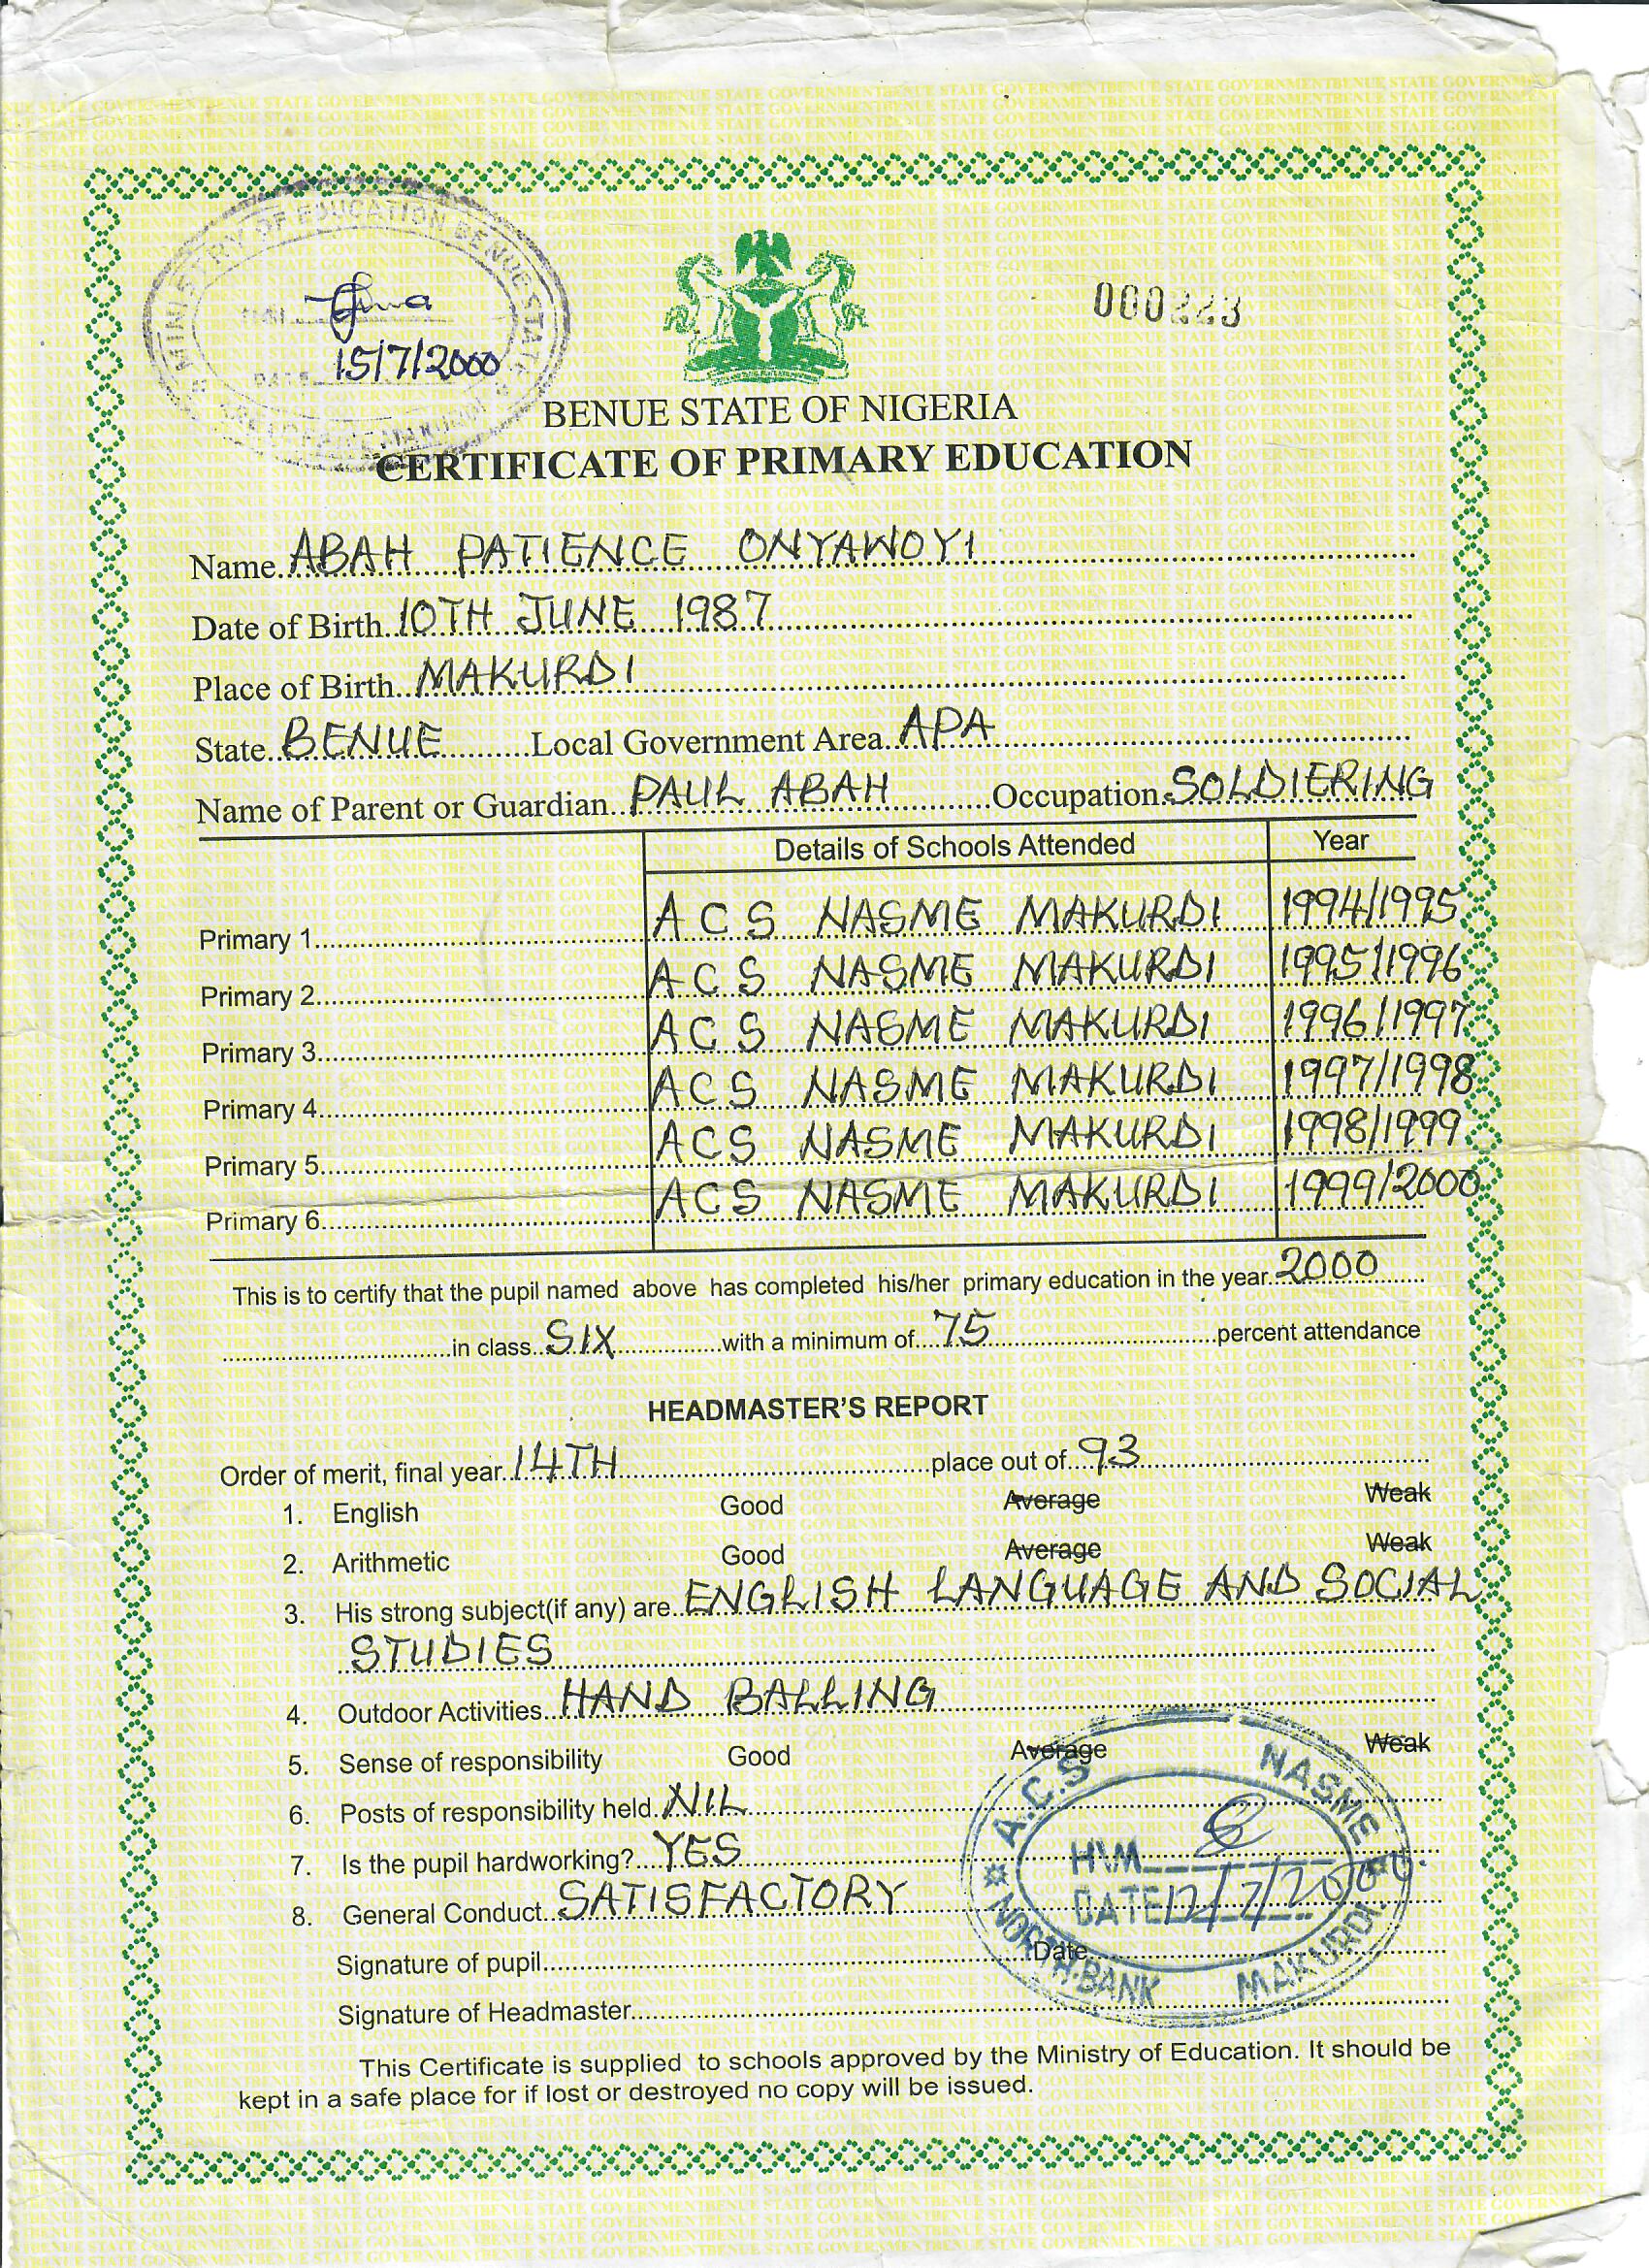 MINISTRY OF EDUCATION BENUE STATE
15/7/2000
000223
BENUE STATE OF NIGERIA
CERTIFICATE OF PRIMARY EDUCATION
Name..ABAH PATIENCE ONYAWOYI
Date of Birth..10TH JUNE 1987
Place of Birth..MAKURDI
State..BENUE.......Local Government Area..APA
Name of Parent or Guardian..PAUL ABAH.......Occupation.SOLDIERING
Details of Schools Attended Year
Primary 1 A C S NASME MAKURDI 1994/1995
Primary 2 A C S NASME MAKURDI 1995/1996
Primary 3 A C S NASME MAKURDI 1996/1997
Primary 4 A C S NASME MAKURDI 1997/1998
Primary 5 A C S NASME MAKURDI 1998/1999
Primary 6 A C S NASME MAKURDI 1999/2000
This is to certify that the pupil named above has completed his/her primary education in the year..2000
in class..SIX.......with a minimum of..75.......percent attendance
HEADMASTER'S REPORT
Order of merit, final year..14TH.......place out of..93
1. English Good Average Weak
2. Arithmetic Good Average Weak
3. His strong subject(if any) are..ENGLISH LANGUAGE AND SOCIAL
STUDIES
4. Outdoor Activities..HAND BALLING
5. Sense of responsibility Good Average Weak
6. Posts of responsibility held..NIL
7. Is the pupil hardworking?..YES
8. General Conduct..SATISFACTORY
A.C.S NASME
H\M
DATE 12/7/2000.
NORTH-BANK MAKURDI
Signature of pupil.......Date
Signature of Headmaster
This Certificate is supplied to schools approved by the Ministry of Education. It should be
kept in a safe place for if lost or destroyed no copy will be issued.